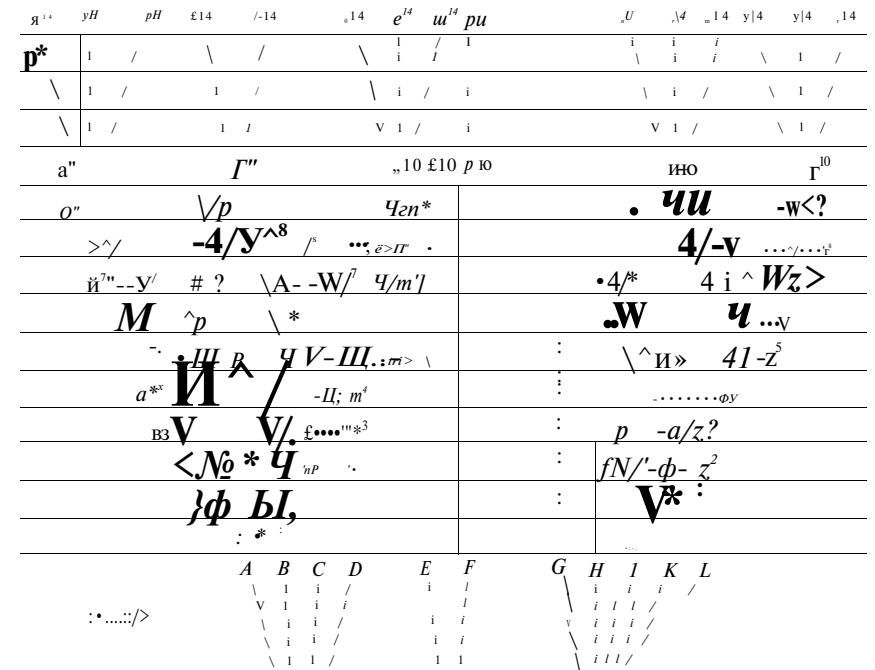 я 14 уН рН £14 /-14 14 е14 ш14 ри U \4 14 у|4 у|4 14
р* 1 / \ / \ 1 / I i i i
i 1 \ i i \ 1 /
\ 1 / 1 / \ i / i \ i / \ 1 /
\ 1 / 1 1 V 1 / i V 1 / \ 1 /
а" Г" „10 £10 р ю ию г10
О" \/р Чгп* . чи -w<?
>^/ -4/У^8 /s •••, ё>П" . 4/-v
й7"--У/ # ? \А- -W/7 Ч/т'] •4/* 4 i ^ Wz>
М ^р \ * ..w ч ...V
-. .Ш р Ч V-Щ.: \ : \^и» 41-z5
а*x Й^/ -Ц; т4 : -.......ФУ
вз V V/. £••••'"*3 : р -a/z?
<№ * Ч 'пР '. : fN/'-ф- z2
}ф Ы, : V* :
: •* :
A B C D E F G H 1 K L
\ 1 i / i l \ i i i /
V 1 i i l i l l /
:•....::/> \ i i / i i V i i i /
\ i i / i i \ i i i /
\ 1 1 / 1 1 \ i l l /